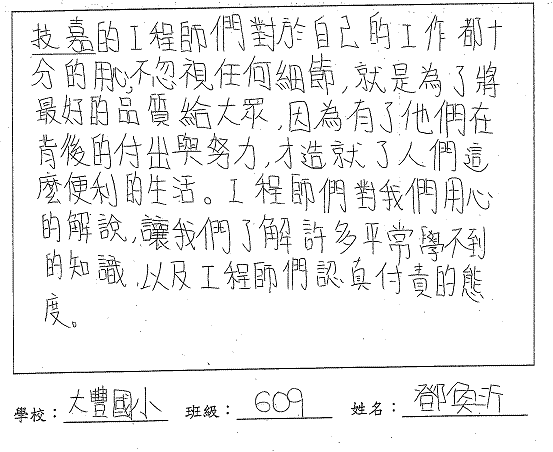 技嘉的工程師們對於自己的工作都十
分的用心,不忽視任何細節,就是為了將
最好的品質給大眾,因為有了他們在
背後的付出與努力,才造就了人們這
麼便利的生活。工程師們對我們用心
的解說,讓我們了解許多平常學不到
的知識,以及工程師們認真付責的態
度。
學校：大豐國小 班級：609 姓名：鄧奐沂